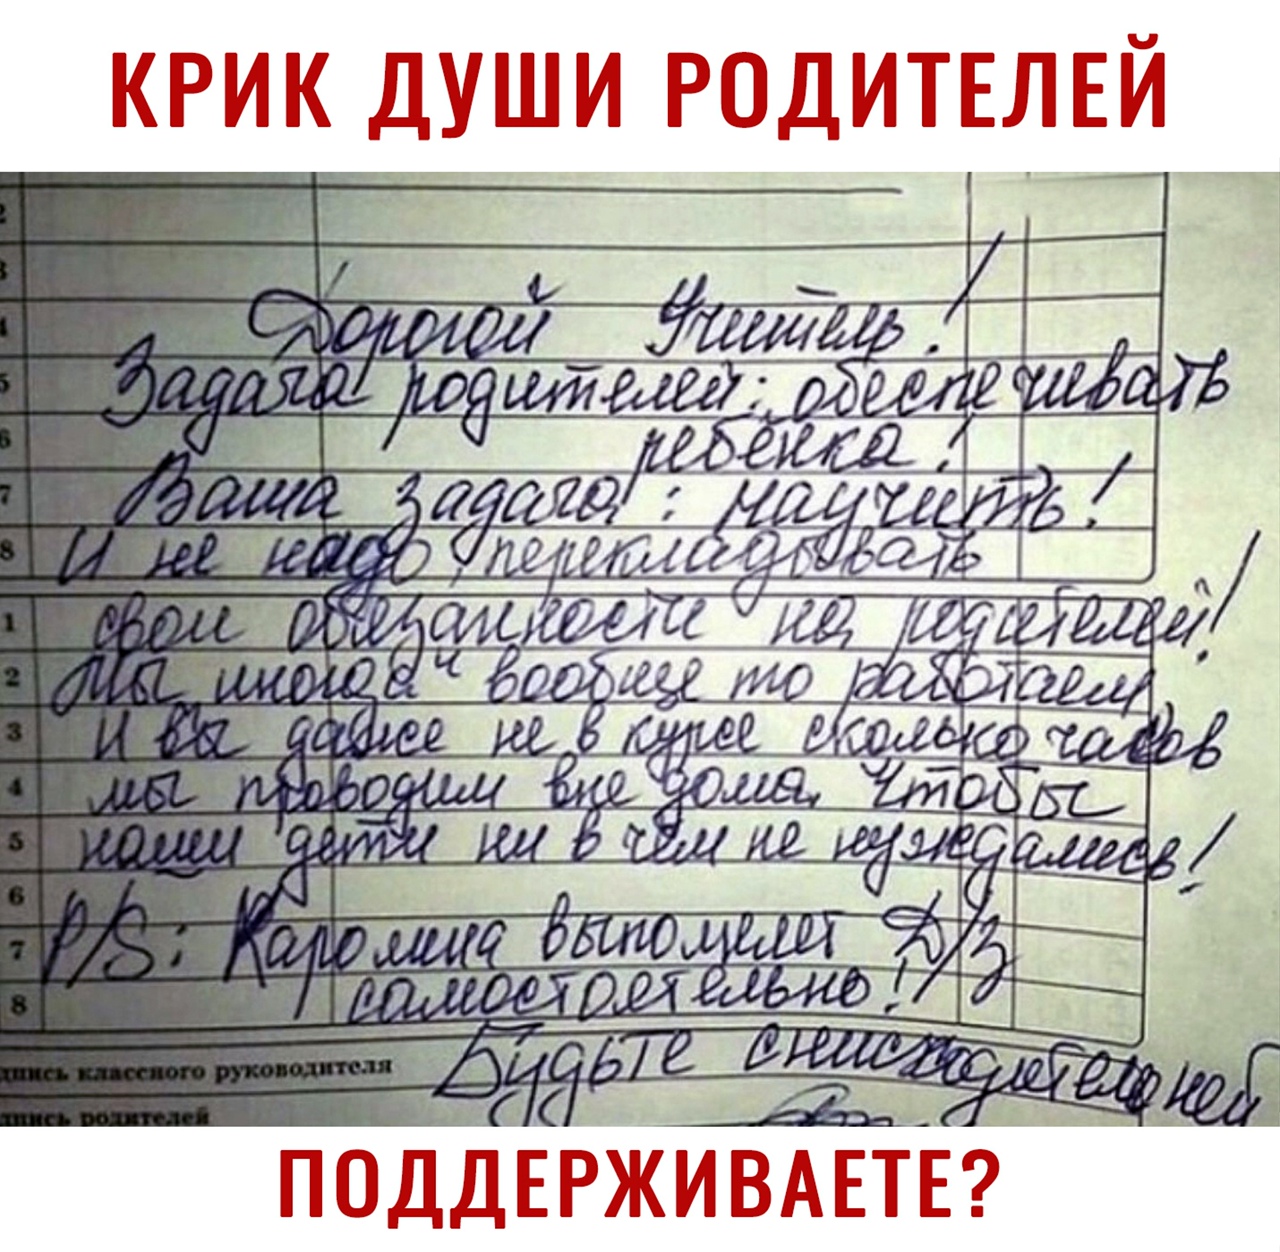 КРИК ДУШИ РОДИТЕЛЕЙ
2
3
4 Дорогой Учитель!
5 Задача родителей: обеспечивать
6 ребёнка!
7 Ваша задача: научить!
8 И не надо перекладывать
1 свои обязанности на родителей!
2 Мы "иногда" вообще то работаем,
3 И вы даже не в курсе сколько часов
4 мы проводим вне дома, Чтобы
5 наши дети ни в чём не нуждались!
6
7 P/S: Каролина выполняет Д/З
8 самостоятельно!
Будьте снисходительней
дпись классного руководителя
дпись родителей
ПОДДЕРЖИВАЕТЕ?